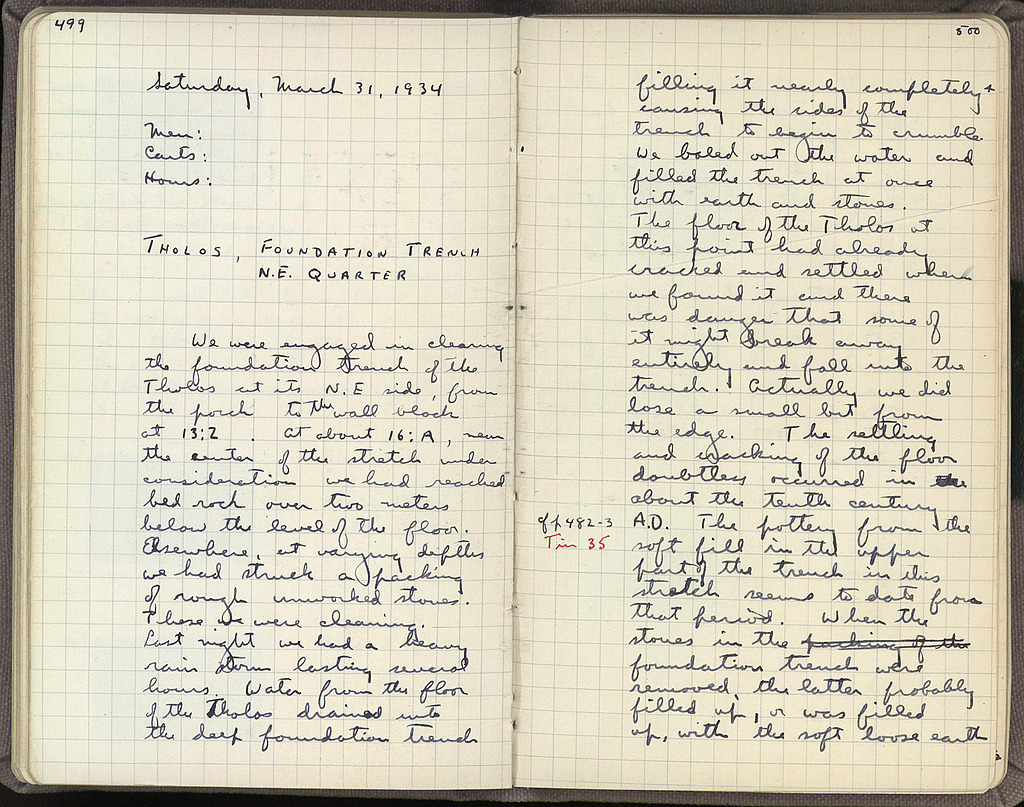 499
Saturday, March 31, 1934
Men:
Carts:
Hours:
THOLOS, FOUNDATION TRENCH
N.E. QUARTER
We were engaged in cleaning
the foundation trench of the
Tholos at its N.E side, from
the porch to the wall block
at 13:Z. At about 16:A, near
the center of the stretch under
consideration we had reached
bed rock over two meters
below the level of the floor.
Elsewhere, at varying depths
we had struck a packing
of rough unworked stones.
These we were cleaning.
Last night we had a heavy
rain storm lasting several
hours. Water from the floor
of the Tholos drained into
the deep foundation trench
500
filling it nearly completely +
causing the sides of the
trench to begin to crumble.
We baled out the water and
filled the trench at once
with earth and stones.
The floor of the Tholos at
this point had already
cracked and settled when
we found it and there
was danger that some of
it might break away
entirely and fall into the
trench. Actually we did
lose a small bit from
the edge. The settling
and cracking of the floor
doubtless occurred in the
about the tenth century
cf p 482-3
Tin 35
A.D. The pottery from the
soft fill in the upper
part of the trench in this
stretch seems to date from
that period. When the
stones in the packing of the
foundation trench were
removed, the latter probably
filled up, or was filled
up, with the soft loose earth